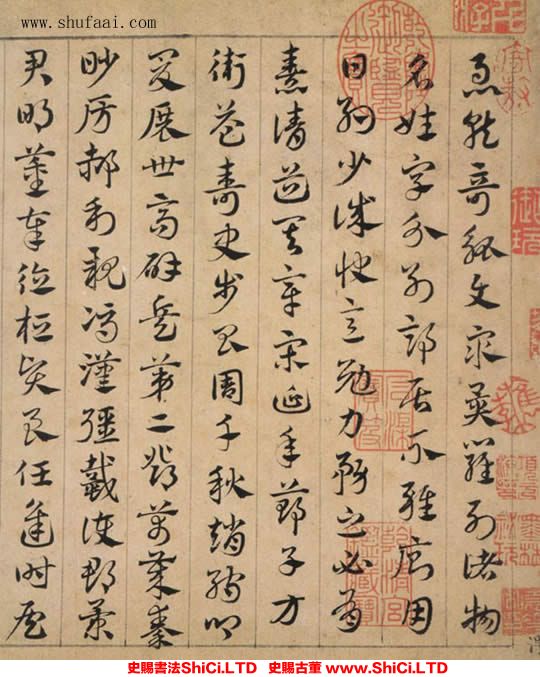 www.shufaai.com
急就奇觚與衆異羅列諸物
名姓字分別部居不雜廁用
日約少誠快意勉力務之必有
憙請道其章宋延年鄭子方
衛益壽史步昌周千秋趙孺卿
爰展世高辟兵第二鄧萬歲秦
眇房郝利親馮漢彊戴護郡景
君明董奉德桓賢良任逢時侯
史賜書法ShiCi.LTD 史賜古董 www.ShiCi.LTD